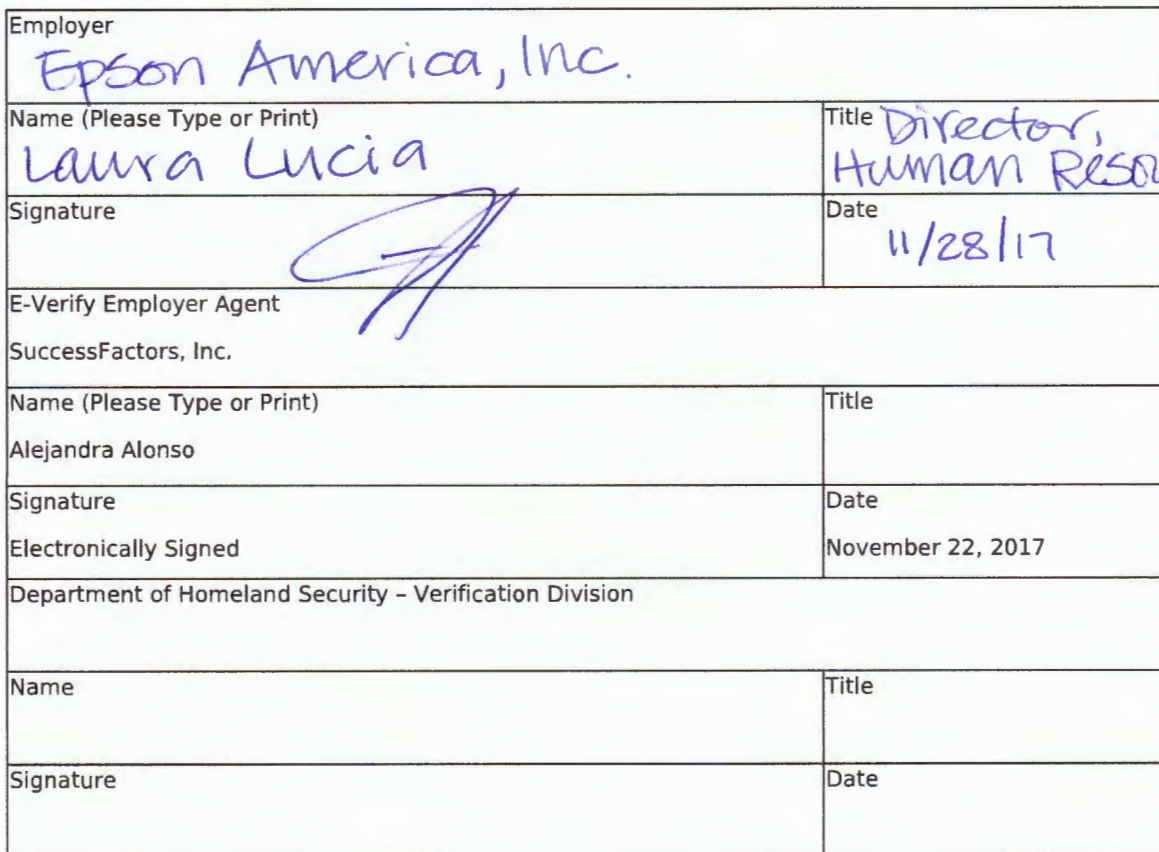 Employer
Epson America, Inc.
Name (Please Type or Print)
Laura Lucia
Title Director,
Human Resou
Signature
Date
11/28/17
E-Verify Employer Agent
SuccessFactors, Inc.
Name (Please Type or Print)
Alejandra Alonso
Title
Signature
Electronically Signed
Date
November 22, 2017
Department of Homeland Security – Verification Division
Name
Title
Signature
Date